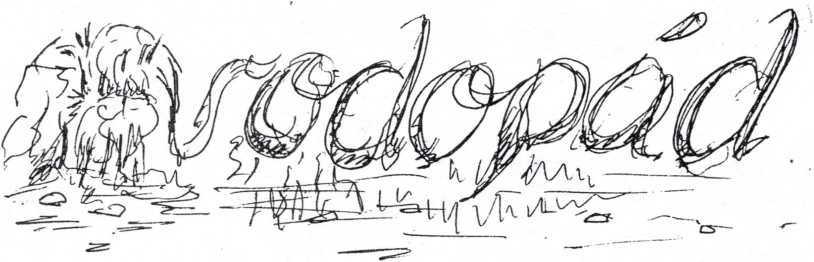 vodopád